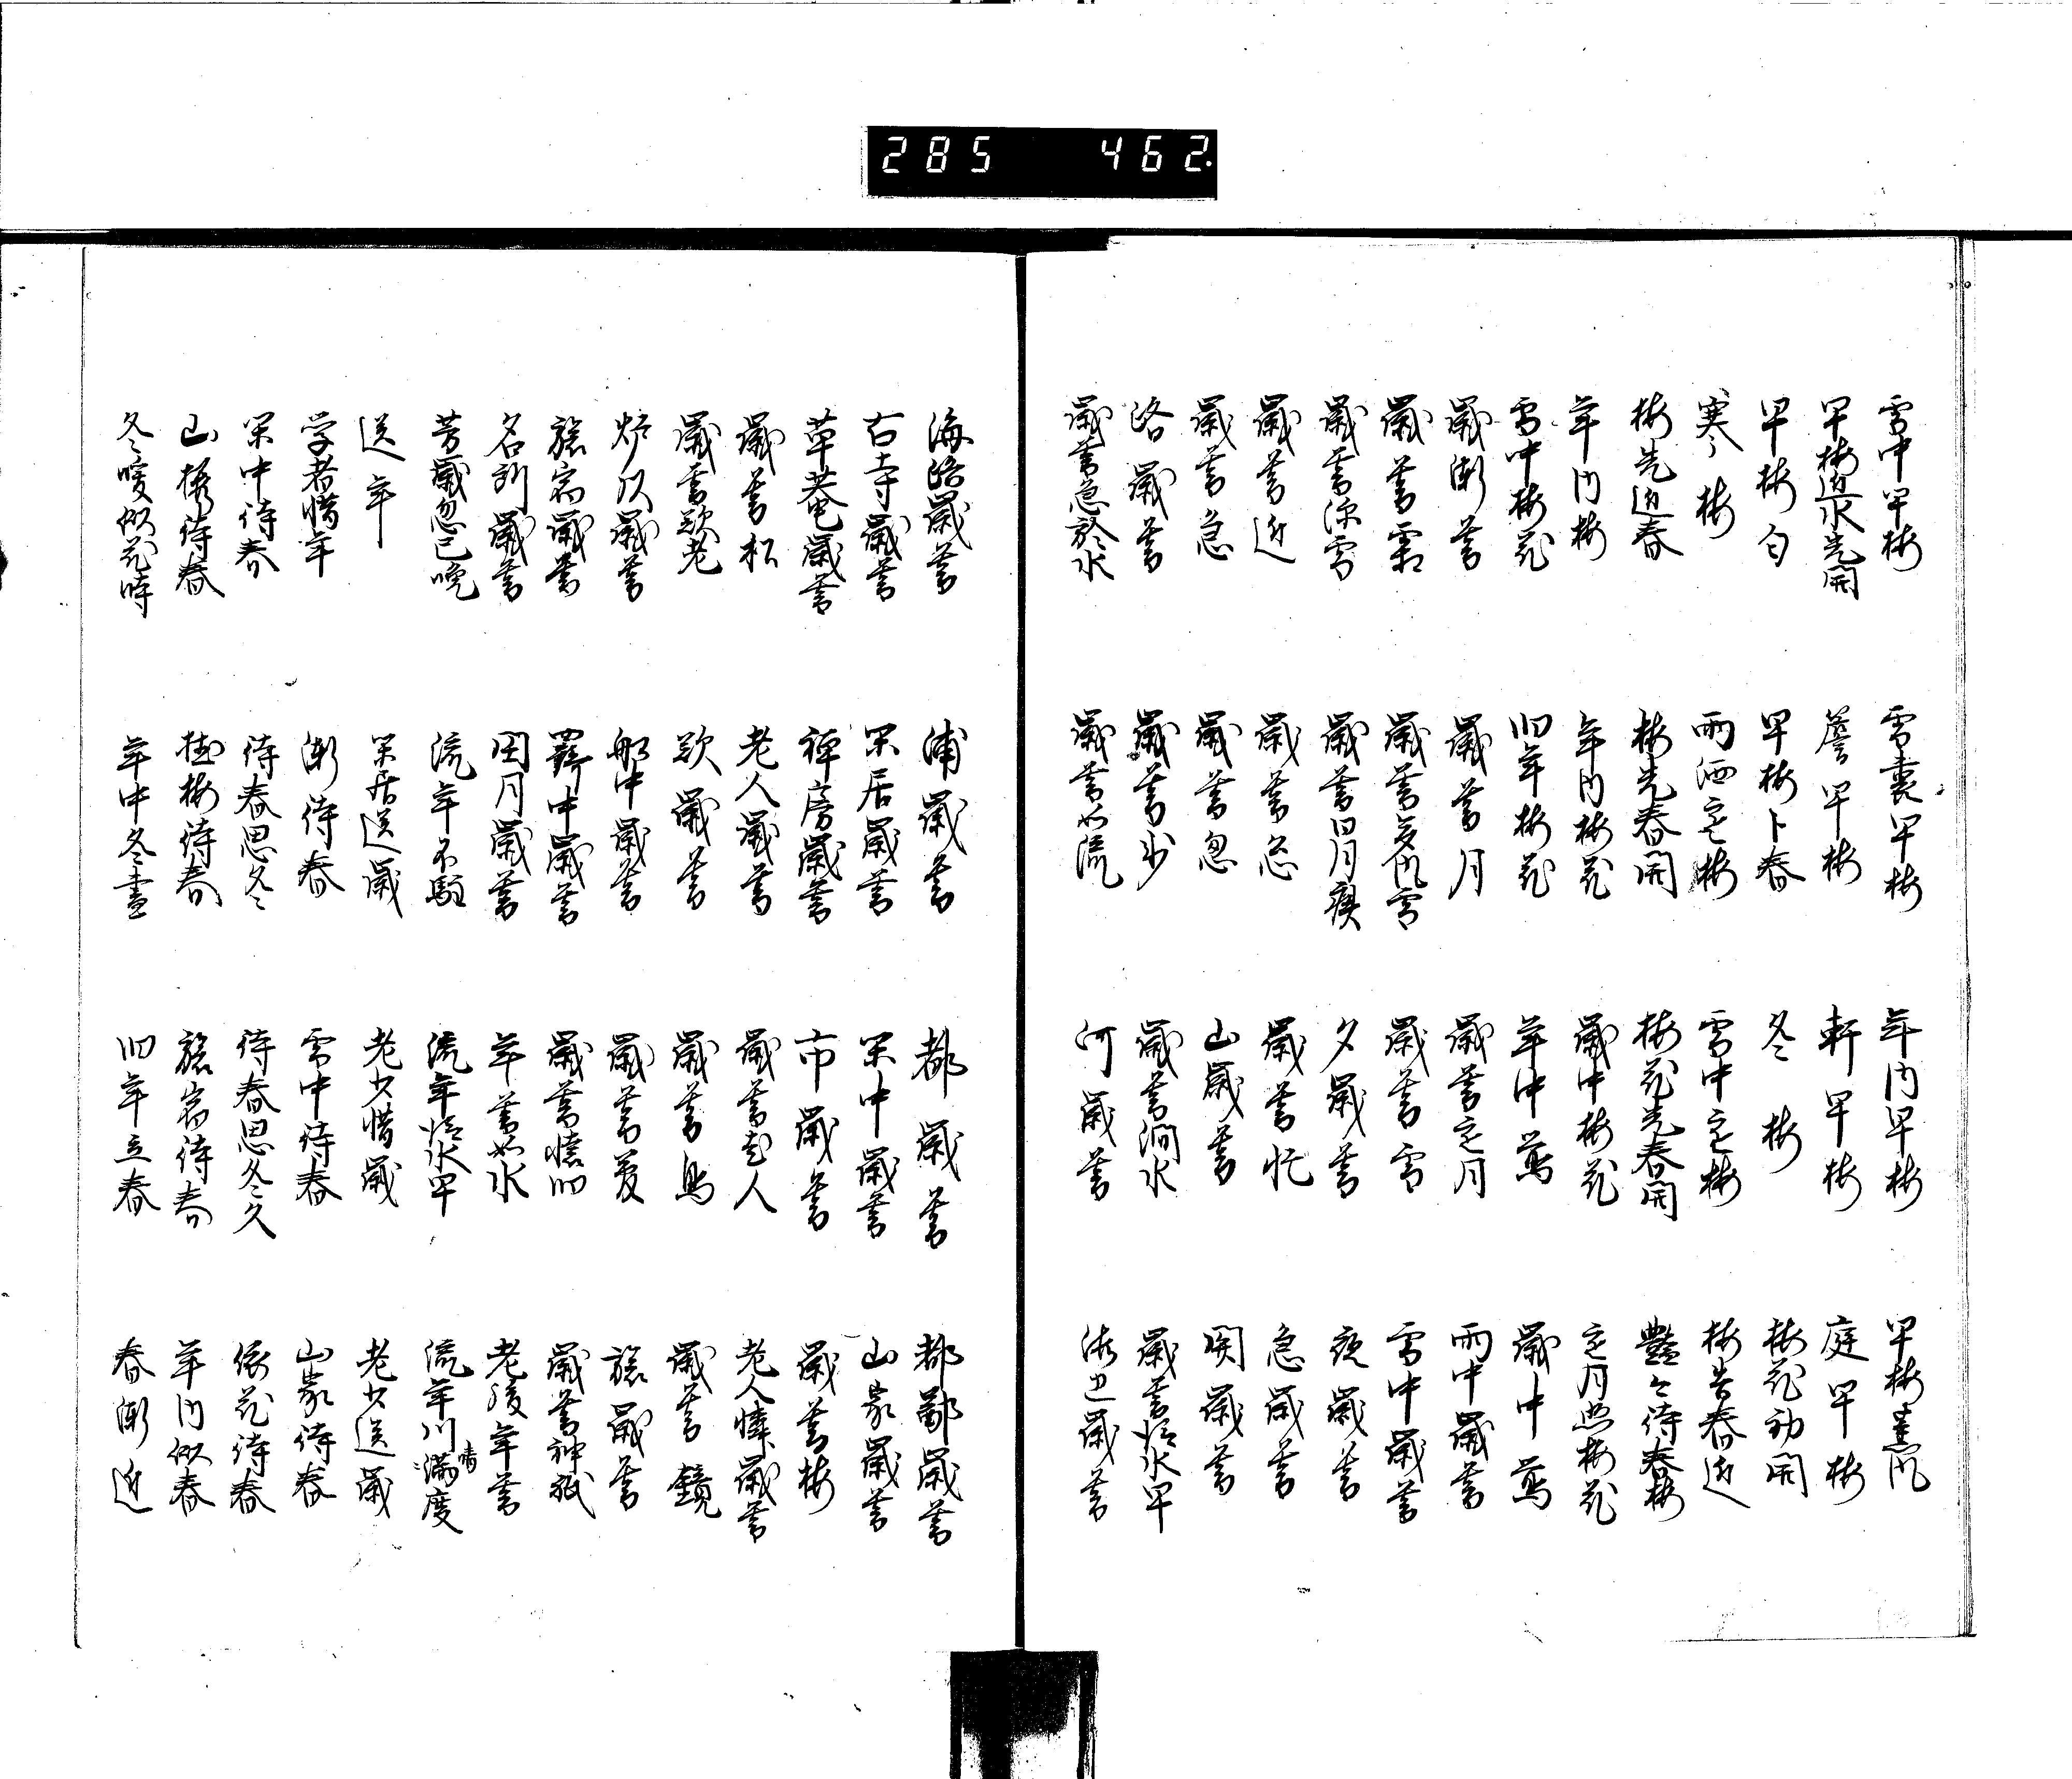 285 462.
雪中早梅 雪裏早梅 年内早梅 早梅薫風
早梅近水先開 簷早梅 軒早梅 庭早梅
早梅匂 早梅卜春 冬梅 梅花初開
寒梅 雨洒寒梅 雪中寒梅 梅告春近
梅先近春 梅先春開 梅花先春開 艶々待春梅
年内梅 年内梅花 歳中梅花 寒月照梅花
雪中梅花 旧年梅花 年中鶯 歳中鶯
歳漸暮 歳暮月 歳暮寒月 雨中歳暮
歳暮霜 歳暮多風雪 歳暮雪 雪中歳暮
歳暮深雪 歳暮日月 夕歳暮 夜歳暮
歳暮近 歳暮急 歳暮忙 急歳暮
歳暮急 歳暮忽 山歳暮 関歳暮
洛歳暮 歳暮少 歳暮澗水 歳暮恰水早
歳暮急於水 歳暮如流 河歳暮 海辺歳暮
海路歳暮 浦歳暮 都歳暮 都鄙歳暮
古寺歳暮 閑居歳暮 閑中歳暮 山家歳暮
草菴歳暮 禅房歳暮 市歳暮 歳暮梅
歳暮松 老人歳暮 歳暮老人 老人惜歳暮
歳暮歎老 歎歳暮 歳暮鳥 歳暮鏡
炉辺歳暮 船中歳暮 歳暮夢 旅歳暮
旅宿歳暮 羇中歳暮 歳暮懐旧 歳暮神祇
名所歳暮 閏月歳暮 年暮如水 老後年暮
芳歳忽已晩 流年不駐 流年恰水早 流年川満度
送年 閑居送歳 老少惜歳 老少送歳
学者惜年 漸待春 雪中待春 山家待春
閑中待春 待春思冬 待春思冬久 依花待春
山榺待春 植梅待春 旅宿待春 年内似春
冬暖似花時 年中冬尽 旧年立春 春漸近